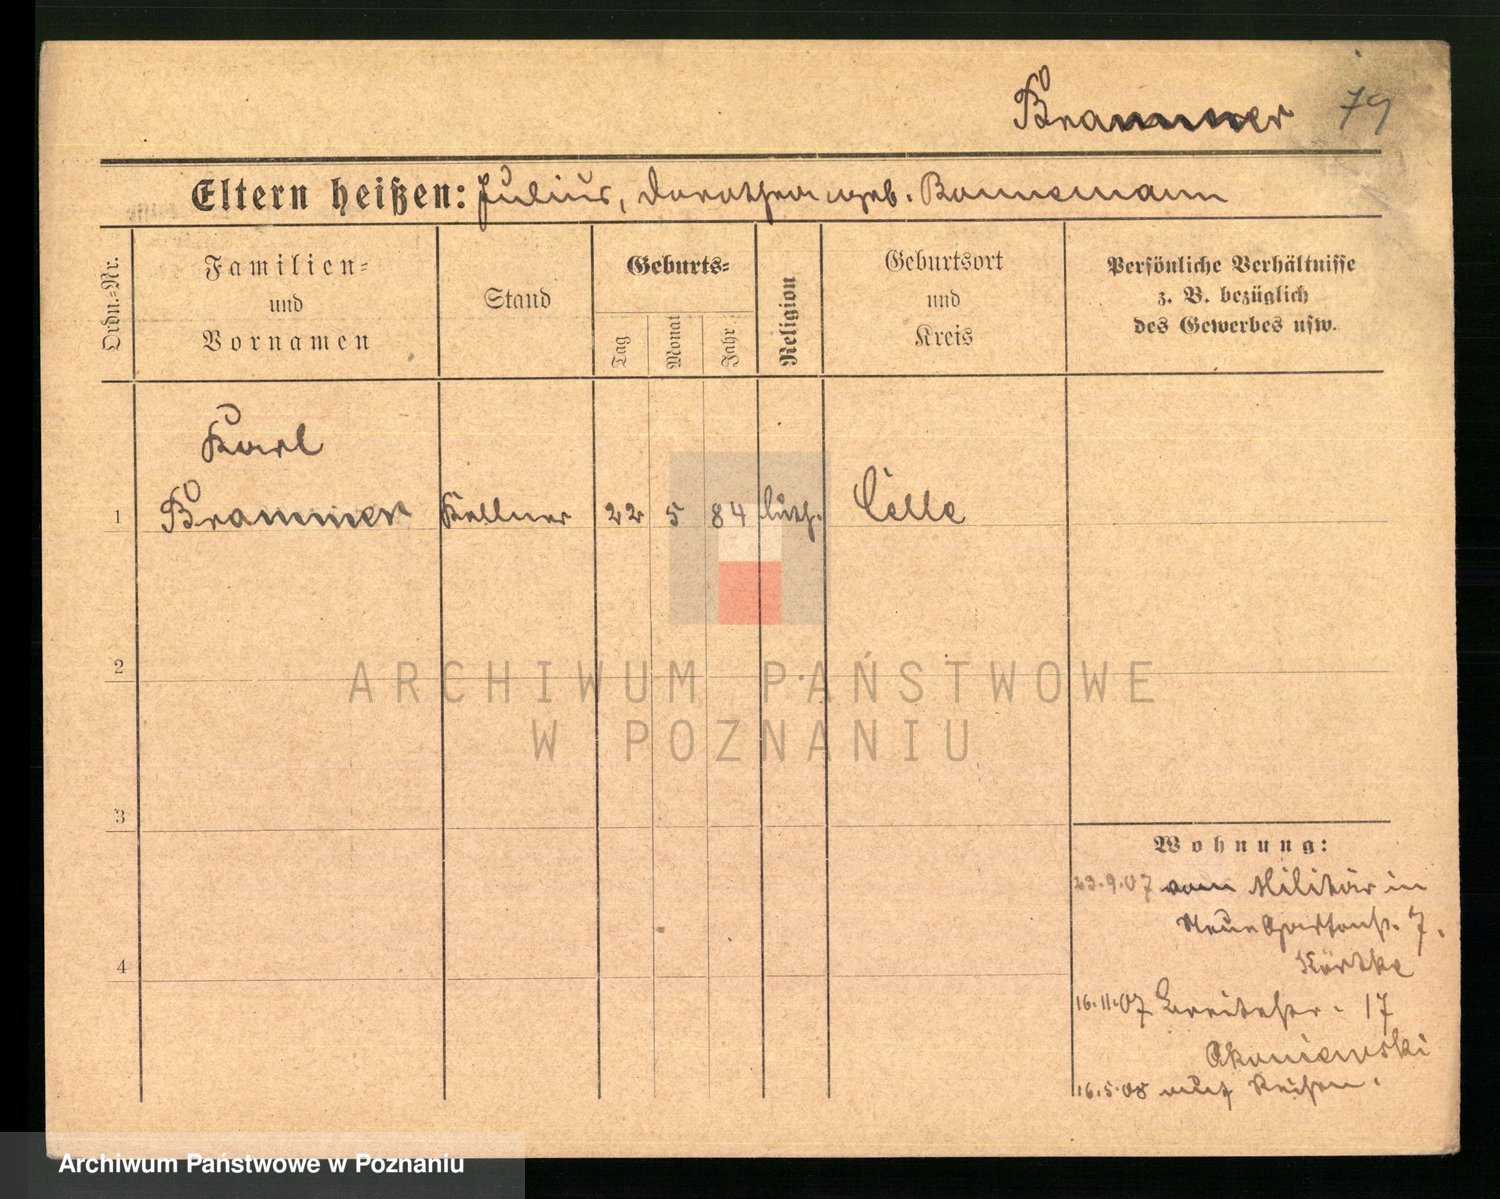 Brammer 79
Eltern heißen: Julius, Dorothea geb. Bonnemann
Ordn.-Nr.
Familien-
und
Vornamen
Stand
Geburts-
Tag
Monat
Jahr
Religion
Geburtsort
und
Kreis
Persönliche Verhältnisse
z. B. bezüglich
des Gewerbes usw.
Karl
1 Brammer Kellner 22 5 84 luth. Celle
2
ARCHIWUM PAŃSTWOWE
W POZNANIU
3
4
Wohnung:
23.9.07 vom Militär in
Neue Gartenstr. 7.
16.11.07 Breitestr. 17
Skoniewski
16.5.08 auf Reisen.
Archiwum Państwowe w Poznaniu